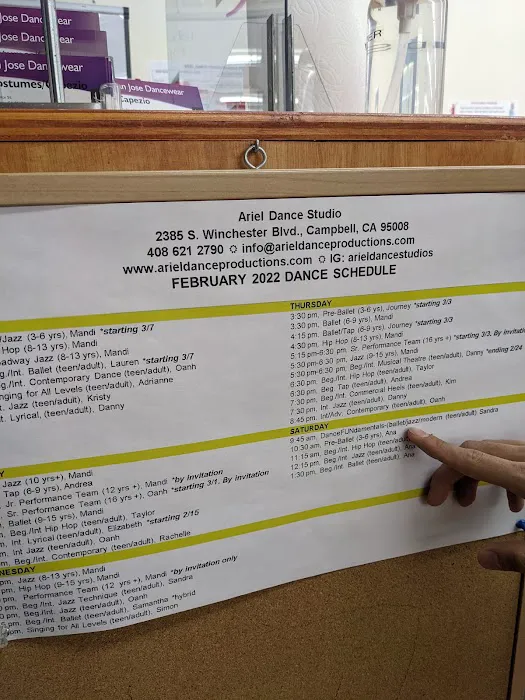 Jose Dancewear
Jose Dancewear
n Jose Dancewear
ostumes/Capezio
Jose Dancewear
Capezio
Ariel Dance Studio
2385 S. Winchester Blvd., Campbell, CA 95008
408 621 2790 ☼ info@arieldanceproductions.com
www.arieldanceproductions.com ☼ IG: arieldancestudios
FEBRUARY 2022 DANCE SCHEDULE
/Jazz (3-6 yrs), Mandi *starting 3/7
Hop (8-13 yrs), Mandi
adway Jazz (8-13 yrs), Mandi
g./Int. Ballet (teen/adult), Lauren *starting 3/7
g./Int. Contemporary Dance (teen/adult), Oanh
nging for All Levels (teen/adult), Adrianne
t. Jazz (teen/adult), Kristy
t. Lyrical, (teen/adult), Danny
THURSDAY
3:30 pm, Pre-Ballet (3-6 yrs), Journey *starting 3/3
3:30 pm, Ballet (6-9 yrs), Mandi
4:15 pm, Ballet/Tap (6-9 yrs), Journey *starting 3/3
4:30 pm, Hip Hop (8-13 yrs), Mandi
5:15 pm-6:30 pm, Sr. Performance Team (16 yrs +) *starting 3/3, By Invitatio
5:30 pm-6:30 pm, Jazz (9-15 yrs), Mandi
5:30 pm-6:30 pm, Beg./Int. Musical Theatre (teen/adult), Danny *ending 2/24
6:30 pm, Beg./Int. Hip Hop (teen/adult), Taylor
6:30 pm, Beg. Tap (teen/adult), Andrea
7:30 pm, Beg./Int. Commercial Heels (teen/adult), Kim
7:30 pm, Int. Jazz (teen/adult), Danny
8:45 pm, Int/Adv. Contemporary (teen/adult), Oanh
Y
Jazz (10 yrs+), Mandi
Tap (6-9 yrs), Andrea
Jr. Performance Team (12 yrs +), Mandi *by Invitation
Sr. Performance Team (16 yrs +), Oanh *starting 3/1, By Invitation
Ballet (9-15 yrs), Mandi
m, Beg./Int Hip Hop (teen/adult), Taylor
m, Int. Lyrical (teen/adult), Elizabeth *starting 2/15
m, Int Jazz (teen/adult), Oanh
m, Beg./Int. Contemporary (teen/adult), Rachelle
SATURDAY
9:45 am, DanceFUNdamentals-(ballet/jazz/modern (teen/adult) Sandra
10:30 am, Pre-Ballet (3-6 yrs), Ana
11:15 am, Beg/Int. Hip Hop (teen/adult
12:15 pm, Beg./Int. Jazz (teen/adult), Ana
1:30 pm, Beg/Int. Ballet (teen/adult), Ana
NESDAY
pm, Jazz (8-13 yrs), Mandi
pm, Hip Hop (9-15 yrs), Mandi
pm, Performance Team (12 yrs +), Mandi *by invitation only
0 pm, Beg./Int. Jazz Technique (teen/adult), Sandra
pm, Beg./Int. Jazz (teen/adult), Oanh
5 pm, Beg./Int. Ballet (teen/adult), Samantha *hybrid
pm, Singing for All Levels (teen/adult), Simon